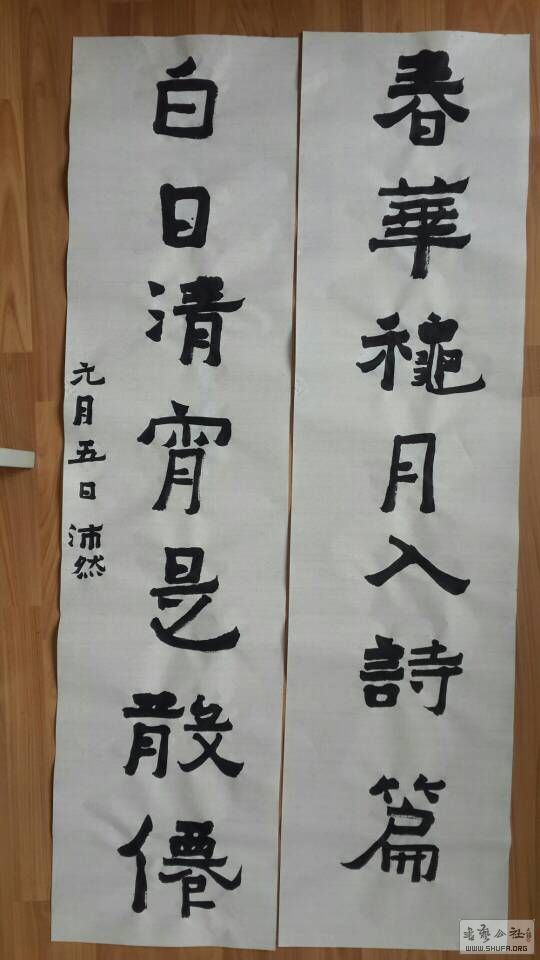 春華穐月入詩篇
白日清宵是散僊
元月五日 沛然
书法公社
WWW.SHUFA.ORG